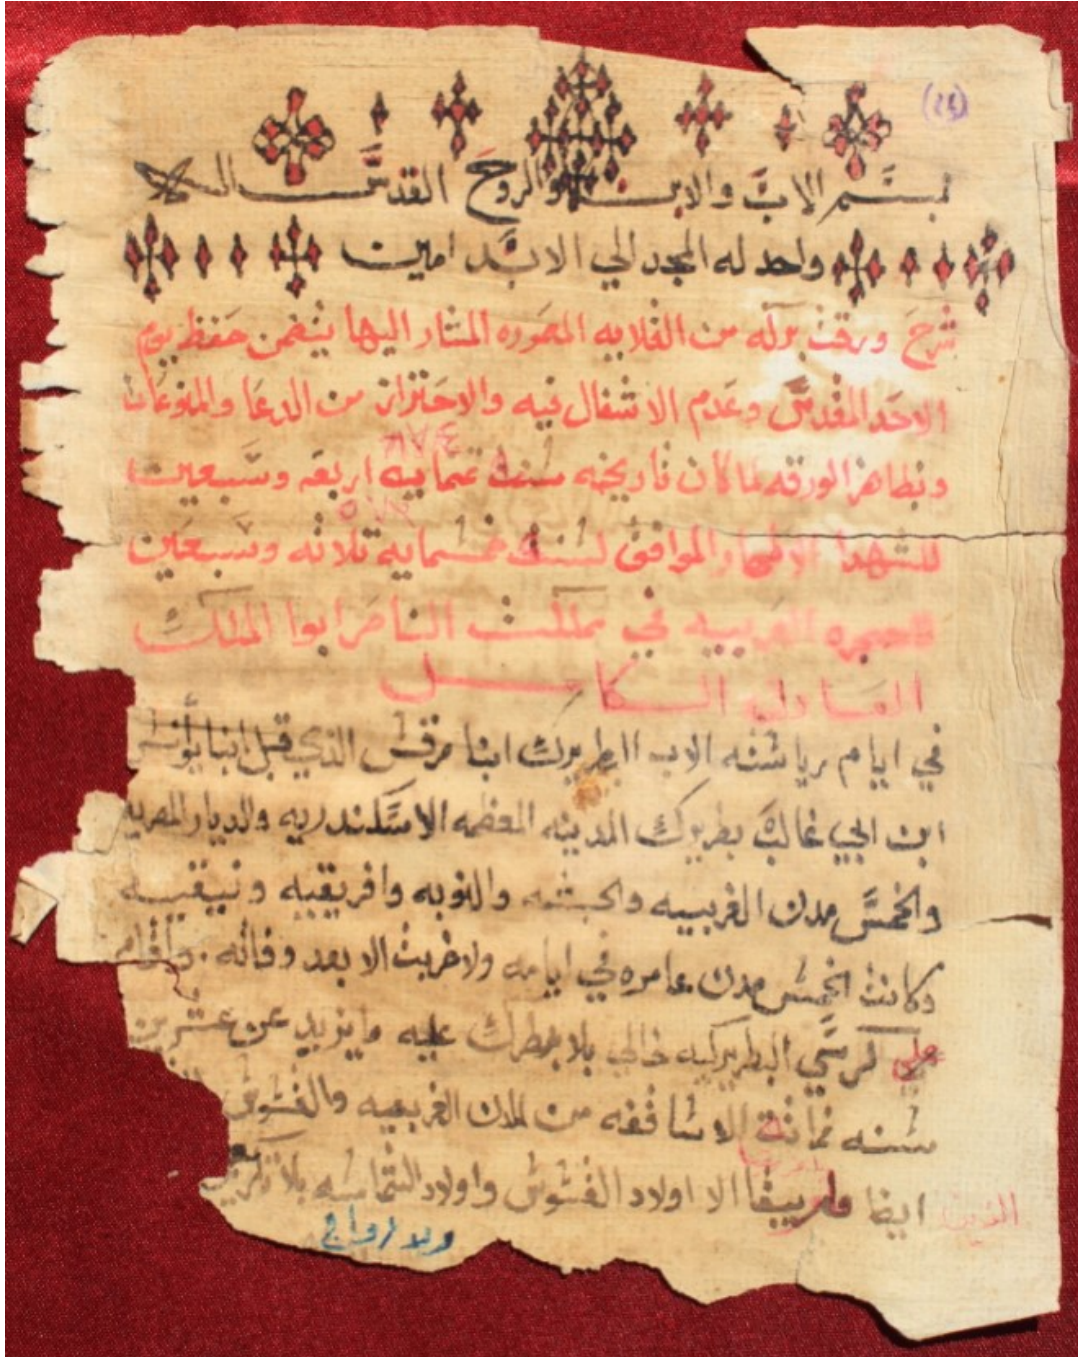 (٢٤)
بسم الاب والابن والروح القدس الاله
واحد له المجد الي الابد امين
شرح ورقت بركه من القلايه المعموره المشار اليها يتضمن حفظ يوم
الاحد المقدس وعدم الاشغال فيه والاحتراز من الدعا والمنوعات
وبظاهر الورقه لما كان تاريخه سنت ثمانية اربعه وسبعين
للشهدا الاطهار الموافق لسنت خمسمايه ثلاثه وسبعين
للهجره العربيه في مملكت الناصر ابوا الملك
العادل الكامل
في ايام رياسته الاب البطريرك انبا مرقس الذي قبل انبا يوانس
ابن ابي غالب بطريرك المدينه المعظمه الاسكندريه والديار المصريه
والخمس مدن الغربيه والحبشه والنوبه وافريقيه ونيقيه
وكانت الخمس مدن عامره في ايامه ولاخربت الا بعد وفاته . واقام
علي كرسي البطريركيه خالي بلا بطرك عليه ما يزيد عن عشرين
سنه الاساقفه من المدن الغربيه والقسوس
الذين ايضا ولم يبقا الا اولاد القسوس واولاد الشماسه بلا تكريز
وبلا زواج